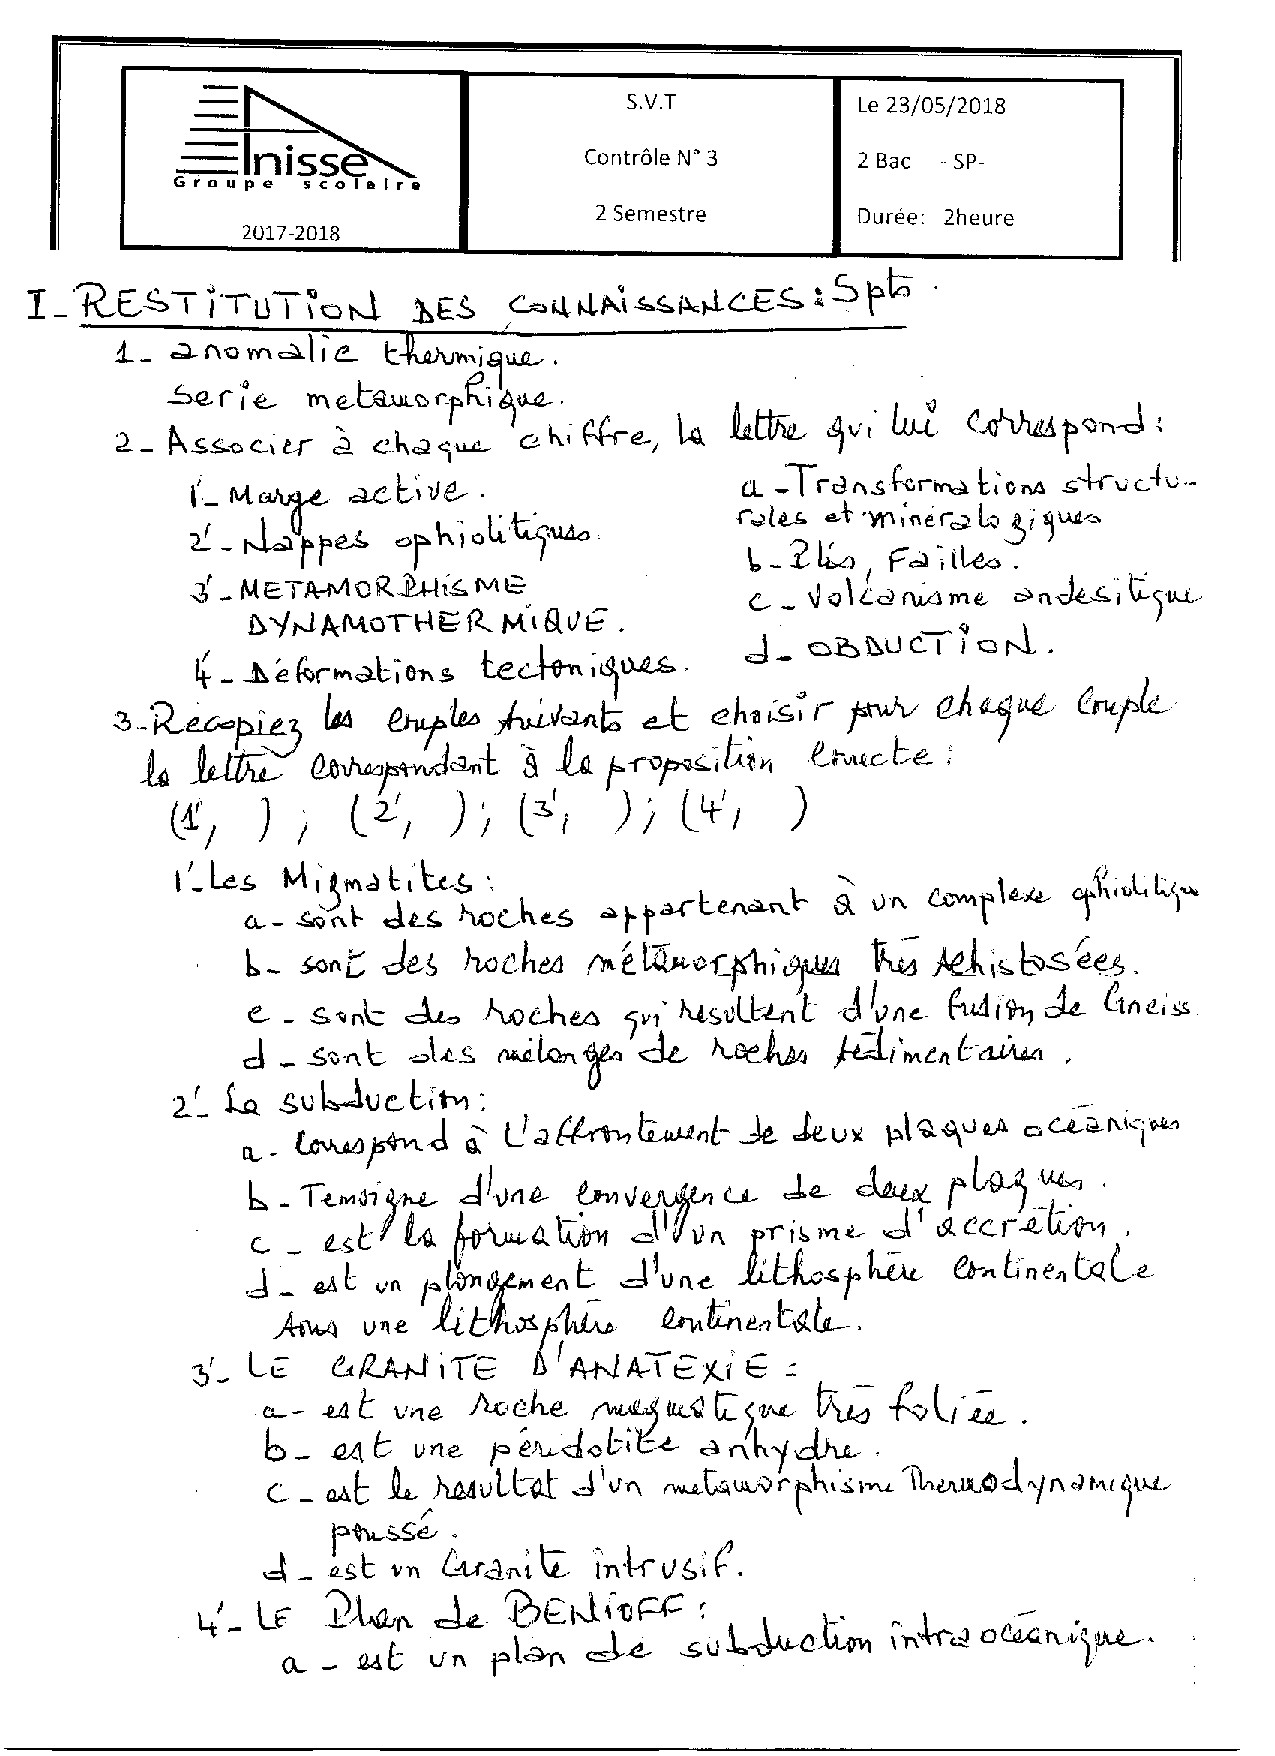 Anisse
Groupe scolaire
2017-2018
S.V.T
Contrôle N° 3
2 Semestre
Le 23/05/2018
2 Bac - SP-
Durée: 2heure
I - RESTITUTION DES CONNAISSANCES : 5pts.
1 - anomalie thermique.
Serie metamorphique.
2 - Associer à chaque chiffre, la lettre qui lui correspond :
1'- Marge active.
2'- Nappes ophiolitiques.
3'- METAMORPHISME
DYNAMOTHERMIQUE.
4'- Déformations tectoniques.
a - Transformations structu-
rales et minéralogiques
b - Plis, Failles.
c - Volcanisme andesitique
d - OBDUCTION.
3 - Recopiez les couples suivants et choisir pour chaque couple
la lettre correspondant à la proposition correcte :
(1', ) ; (2', ) ; (3', ) ; (4', )
1'- Les Migmatites :
a - sont des roches appartenant à un complexe ophiolitique
b - sont des roches métamorphiques très schistosées.
c - sont des roches qui résultent d'une fusion de Gneiss
d - sont des mélanges de roches sédimentaires.
2'- La subduction :
a - Correspond à l'affrontement de deux plaques océaniques
b - Temoigne d'une convergence de deux plaques.
c - est la formation d'un prisme d'accrétion.
d - est un plongement d'une lithosphère continentale
sous une lithosphère continentale.
3'- LE GRANITE D'ANATEXIE :
a - est une roche magmatique très foliée.
b - est une péridotite anhydre.
c - est le résultat d'un metamorphisme Thermodynamique
poussé.
d - est un Granite intrusif.
4'- LE Plan de BENIOFF :
a - est un plan de subduction intraocéanique.